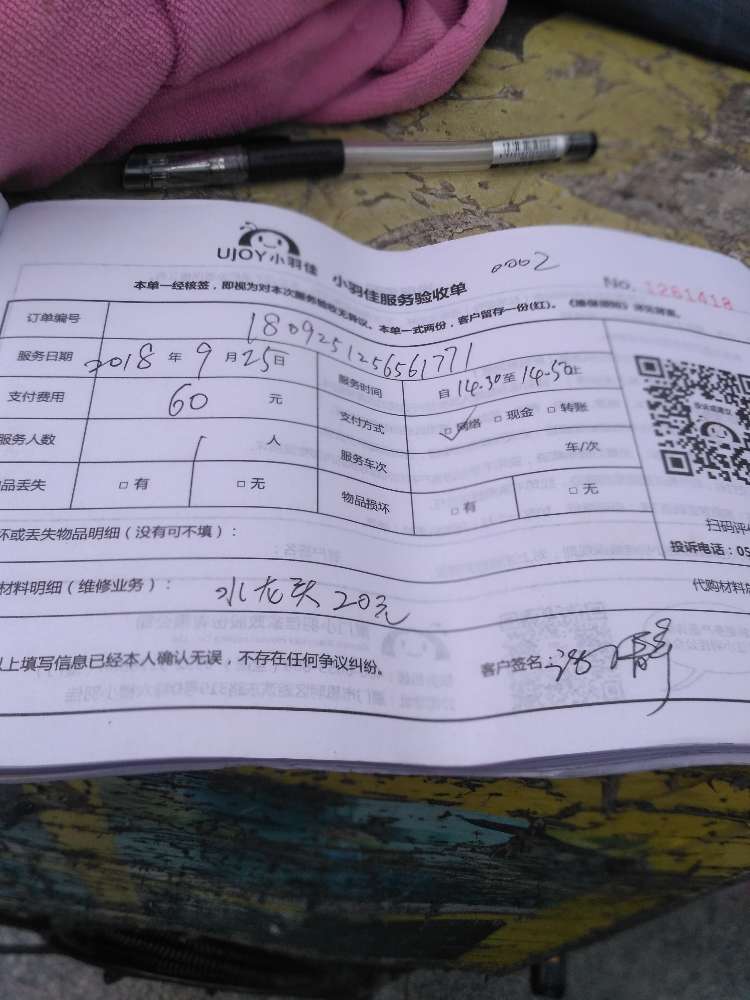 UJOY小羽佳 小羽佳服务验收单 0002
No. 1261418
本单一经核签，即视为对本次服务验收无异议。本单一式两份，客户留存一份(红)。
订单编号 1809251256561771
服务日期 2018 年 9 月 25 日 服务时间 自 14.30 至 14.50 止
支付费用 60 元 支付方式 □ 网络 □ 现金 □ 转账
服务人数 1 人 服务车次 车/次
品丢失 □ 有 □ 无 物品损坏 □ 有 □ 无
坏或丢失物品明细（没有可不填）：
扫码评
投诉电话：05
材料明细（维修业务）： 水龙头20元 代购材料
上填写信息已经本人确认无误，不存在任何争议纠纷。 客户签名：